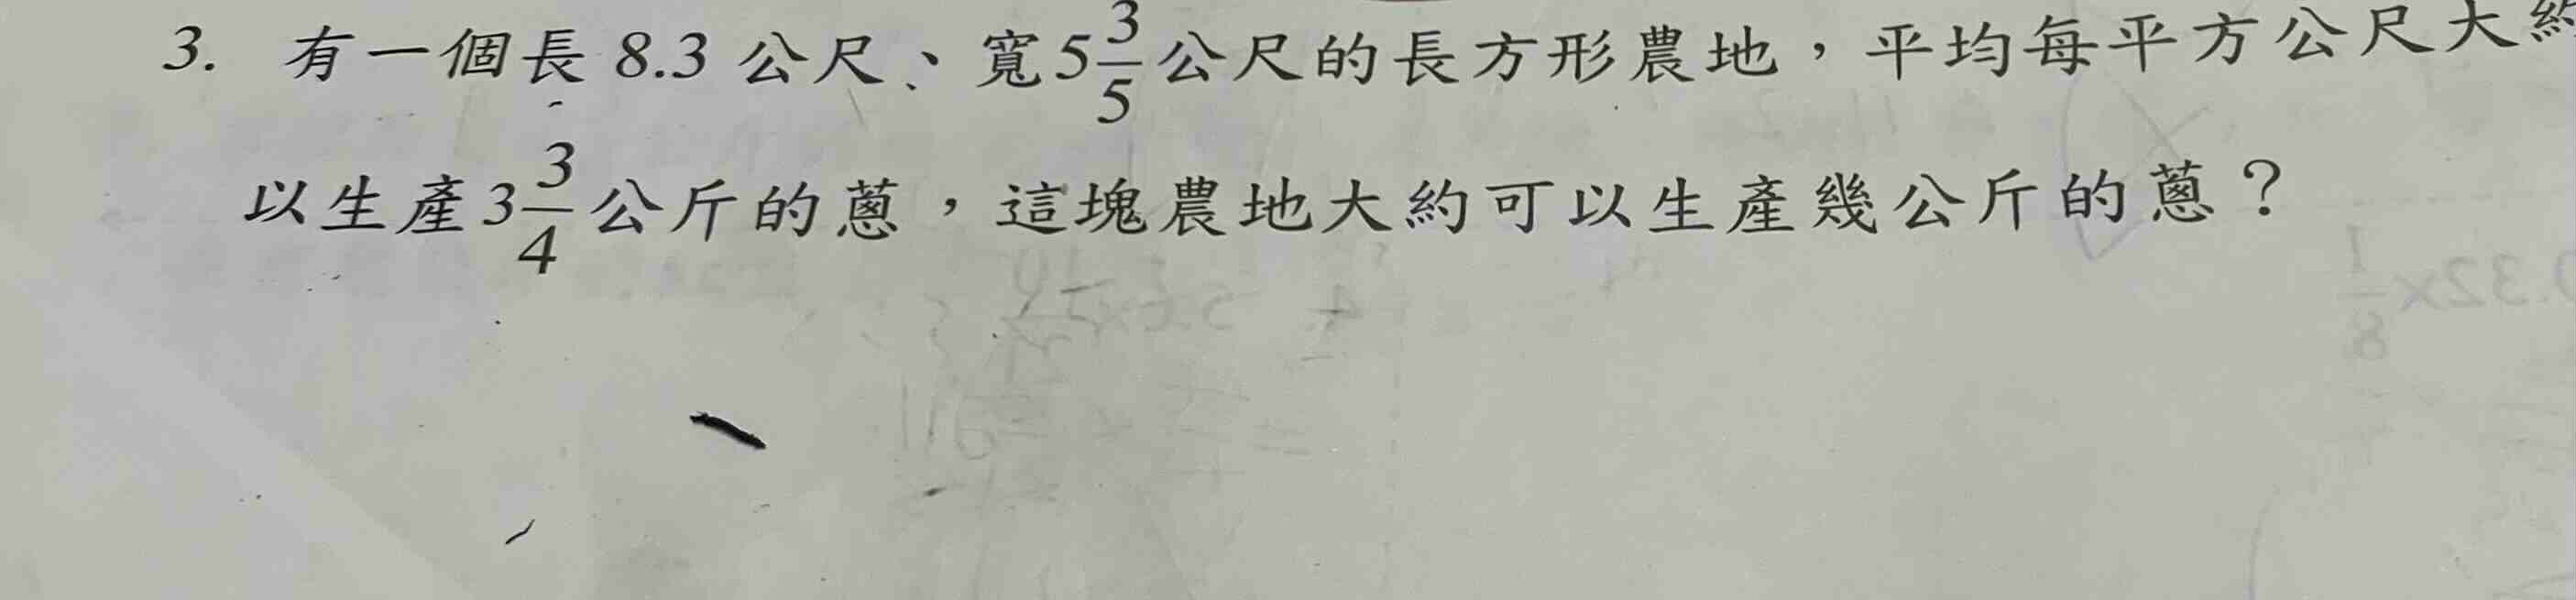 3. 有一個長 8.3 公尺、寬5$\frac{3}{5}$公尺的長方形農地，平均每平方公尺大約
以生產3$\frac{3}{4}$公斤的蔥，這塊農地大約可以生產幾公斤的蔥？